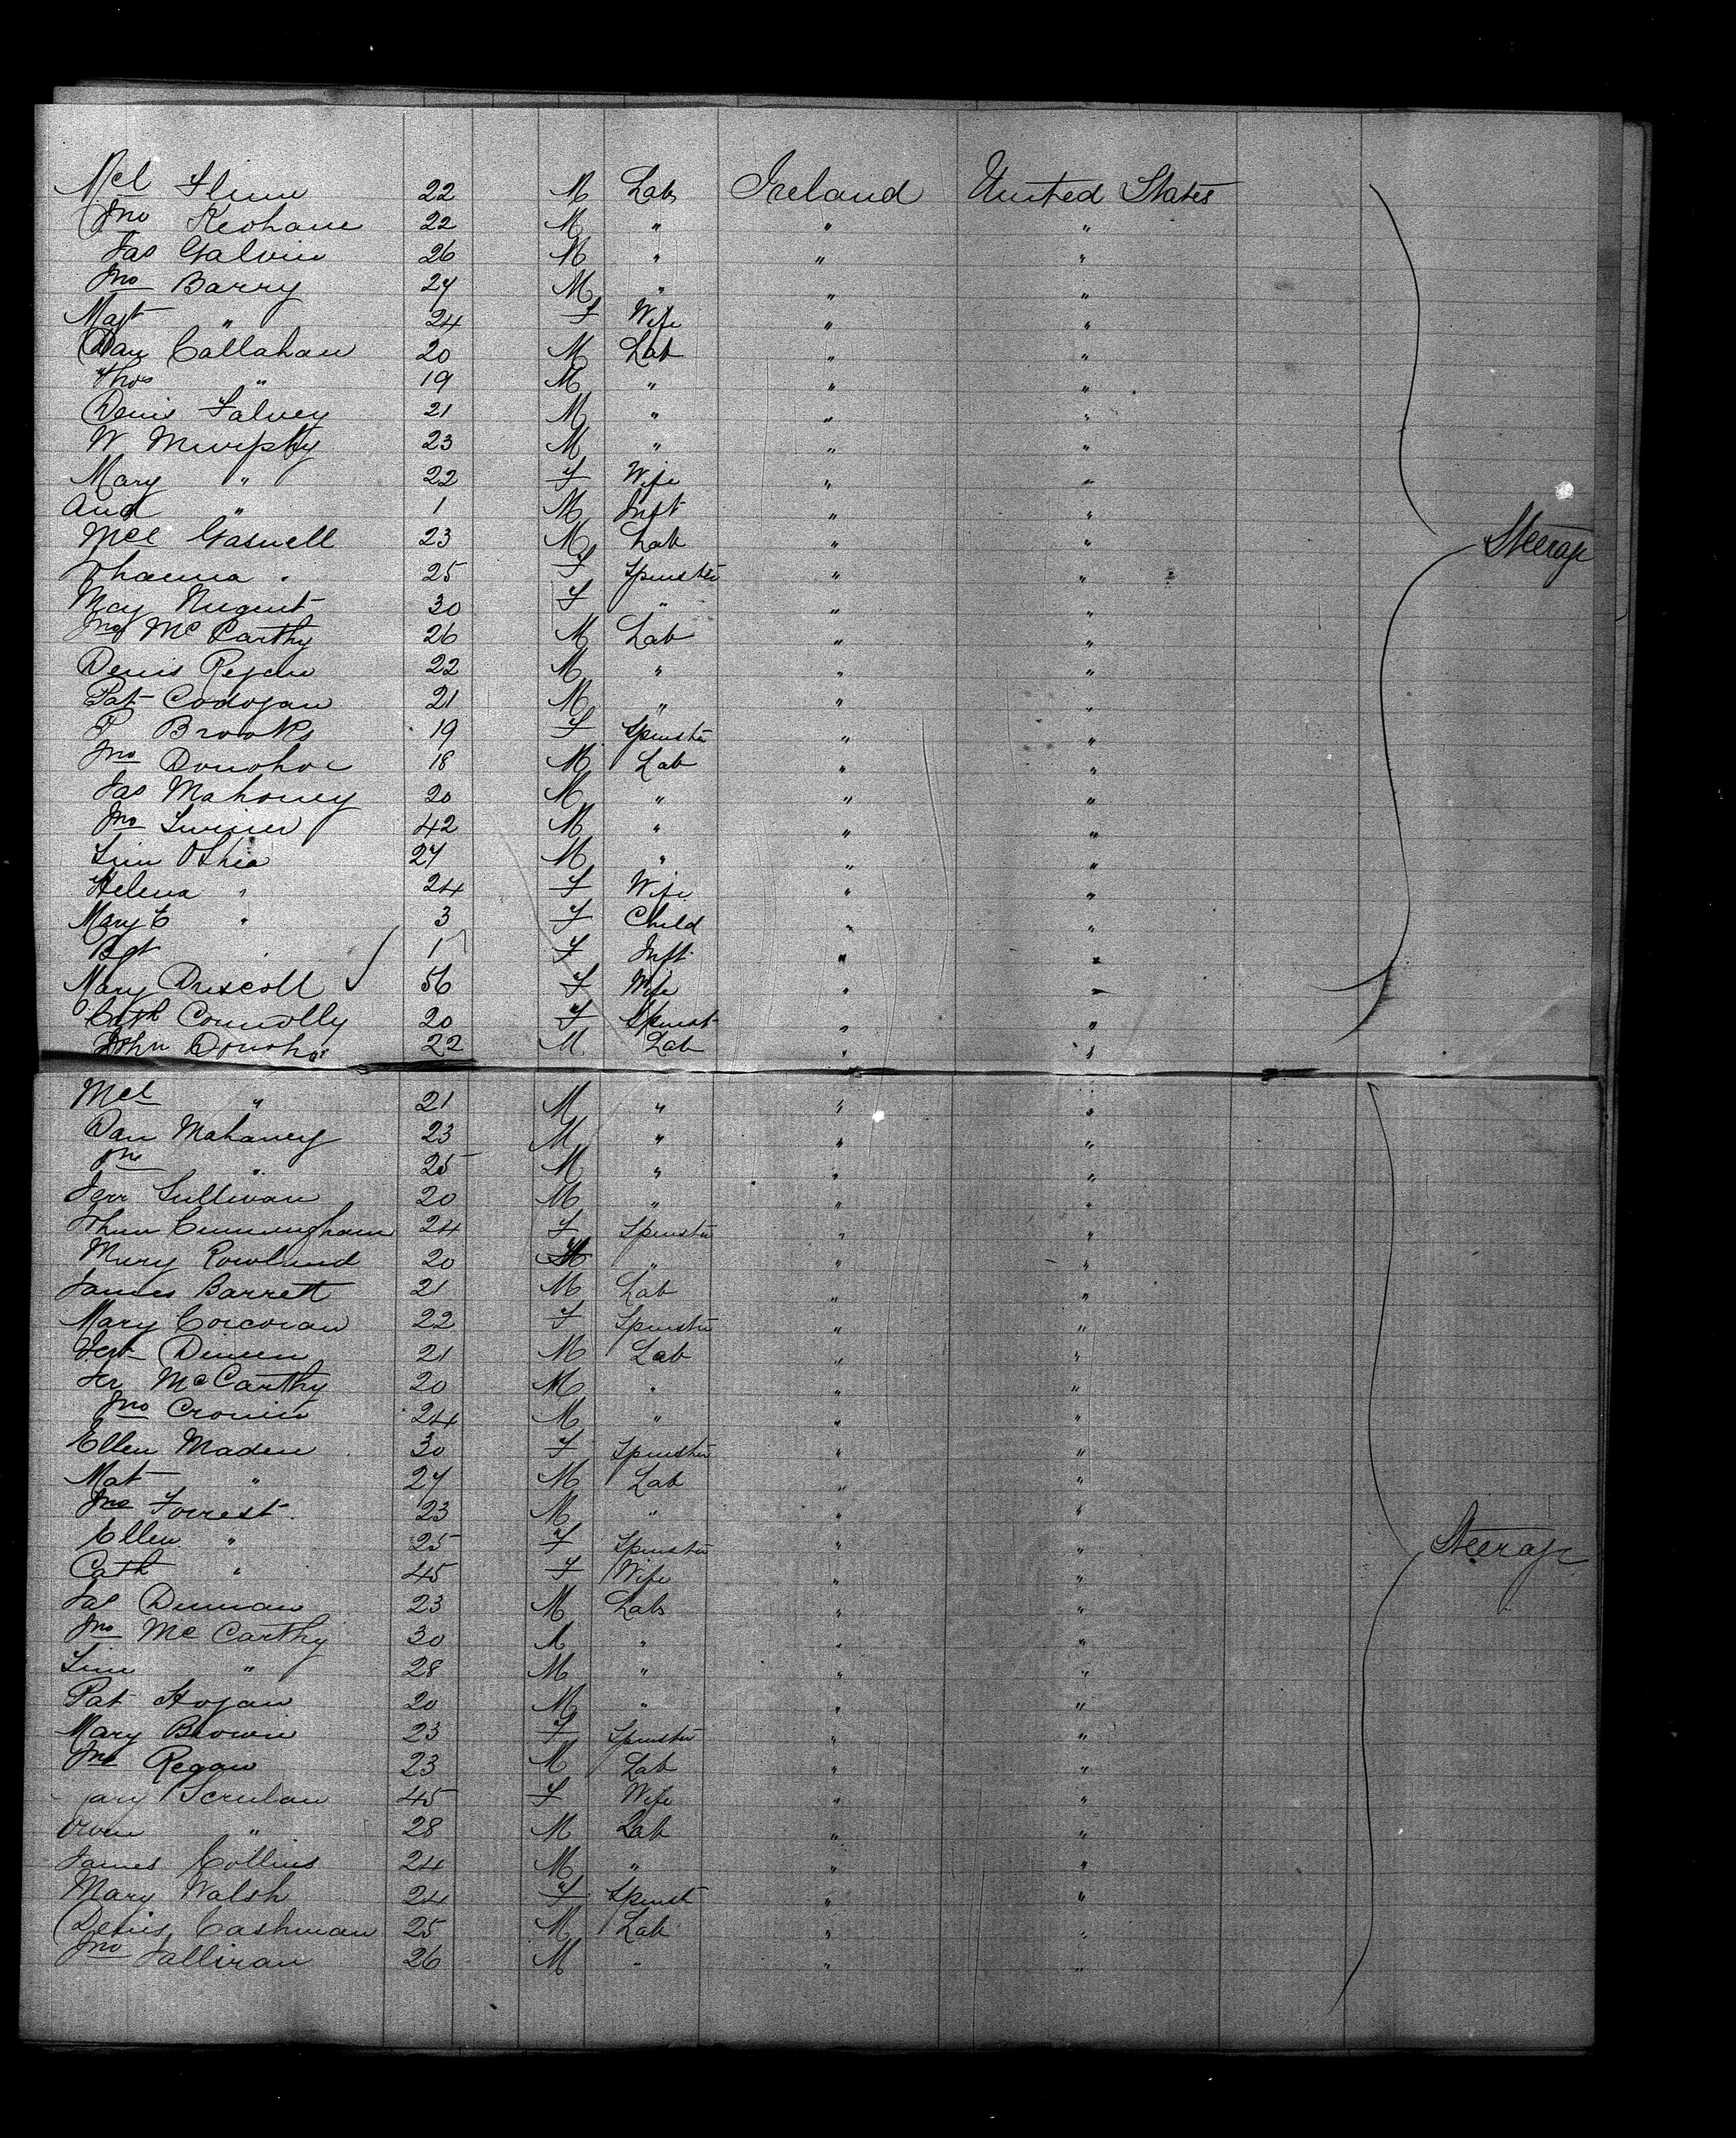 Mcl Flinn 22 M Lab Ireland United States
Jno Keohane 22 M " " "
Jas Galvin 26 M " " "
Jno Barry 27 M " " "
Magt " 24 F Wife " "
Dan Callahan 20 M Lab " "
Thos " 19 M " " "
Denis Falvey 21 M " " "
W Murphy 23 M " " "
Mary " 22 F Wife " "
And " 1 M Inft " "
Mcl Gaswell 23 M Lab " "
Johanna " 25 F Spinster " "
May Nugent 30 F " " "
Jno McCarthy 26 M Lab " "
Steerage
Denis Regan 22 M " " "
Pat Codogan 21 M " " "
P Brooks 19 F Spinster " "
Jno Donohoe 18 M Lab " "
Jas Mahoney 20 M " " "
Jno 42 M " " "
Tim OShea 27 M " " "
Helena " 24 F Wife " "
Mary E " 3 F Child " "
Bgt " 1 F Inft " "
Mary Driscoll 56 F Wife " "
Cath Connolly 20 F Spinst " "
John Donohoe 22 M Lab " "
Mcl " 21 M " " "
Dan Mahaney 23 M " " "
Jno " 25 M " " "
Jerr Sullivan 20 M " " "
Cunningham 24 F Spinster " "
Mary Rowland 20 " " "
James Barrett 21 M Lab " "
Mary Corcoran 22 F Spinster " "
Dineen 21 M Lab " "
Jer McCarthy 20 M " " "
Jno Cronin 24 M " " "
Ellen Maden 30 F Spinster " "
Mat " 27 M Lab " "
Jno Forrest 23 M " " "
Ellen " 25 F Spinster " "
Steerage
Cath " 45 F Wife " "
Jas 23 M Lab " "
Jno McCarthy 30 M " " "
Tim " 28 M " " "
Pat Hogan 20 M " " "
Mary Brown 23 F Spinster " "
Jno Regan 23 M Lab " "
Mary 45 F Wife " "
Owen " 28 M Lab " "
James Collins 24 M " " "
Mary Walsh 24 F Spinst " "
Denis Cashman 25 M Lab " "
Jno Sullivan 26 M " " "